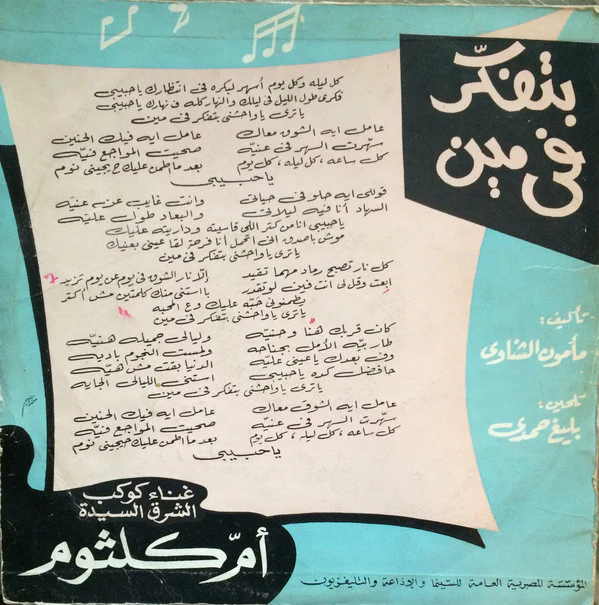 بتفكّر
فى مين
كل ليله وكل يوم أسهر لبكره فى انتظارك ياحبيبى
فكرى طول الليل فى ليلك والنهار كله ف نهارك ياحبيبى
ياترى ياواحشنى بتفكر فى مين
عامل ايه الشوق معاك عامل ايه فيك الحنين
سهّرت السهر فى عنيّه صحيت المواجع فيّه
كل ساعه ، كل ليله ، كل يوم بعد ما اطمن عليك ح يجينى نوم
ياحبيبى
قوللى ايه حلو فى حياتى وانت غايب عن عنيّه
السهاد أنا فيه ليلاتى والبعاد طول عليّه
ياحبيبى انا من كتر اللى قاسيته وداريته عليك
موش باصدق انى اتحمل أنا فرحة لقا عينى بعينك
ياترى ياواحشنى بتفكر فى مين
كل نار تصبح رماد مهما تقيد إلا نار الشوق فى يوم عن يوم تزيد
ابعت وقل لى انت فين لو تقدر با استنى منك كلمتين مش أكتر
يطمنونى حبّه عليك وع المحبه
ياترى ياواحشنى بتفكر فى مين
كان قربك هنا وحنيّه وليالى جميله هنيّه
طار بيّه الأمل بجناحه ولمست النجوم بإديه
وف بعدك ياعينى عليّه الدنيا بقت مش هيّه
حافضل كده ياحبيبى استنى الليالى الجايه
ياترى ياواحشنى بتفكر فى مين
عامل ايه الشوق معاك عامل ايه فيك الحنين
سهّرت السهر فى عنيه صحيت المواجع فيّه
كل ساعه ، كل ليله ، كل يوم بعد ما اطمن عليك حيجينى نوم
ياحبيبى
تأليف :
مأمون الشناوى
تلحين :
بليغ حمدى
غناء كوكب
الشرق السيدة
أمّ كلثوم
المؤسسة المصرية العامة للسينما والإذاعة والتليفزيون